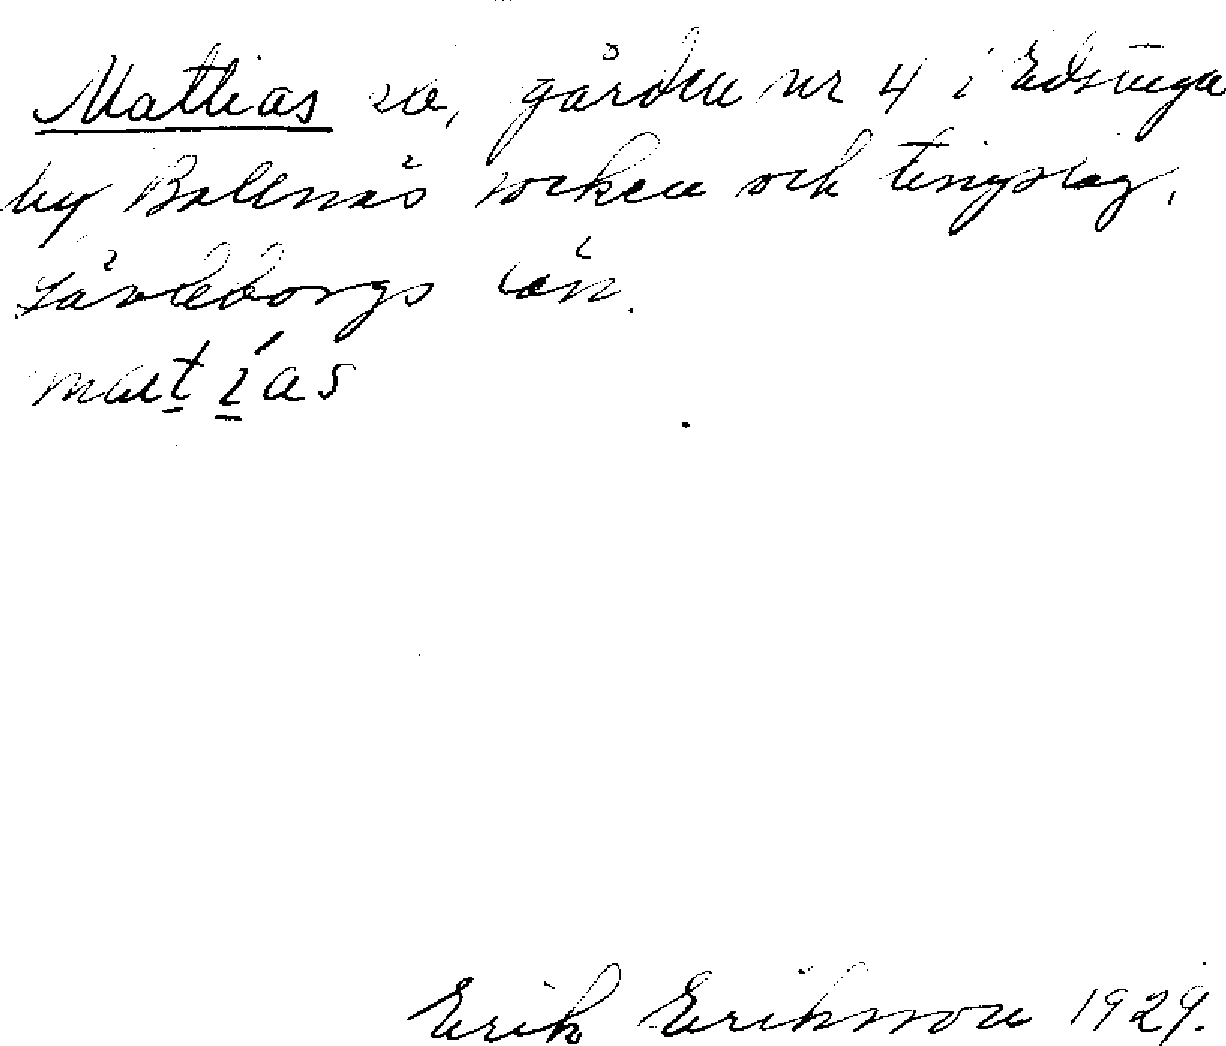 Mattias sв, gården nr 4 i Edstuga
by Bollnäs socken och tingslag,
Gävleborgs län.
matías
Erik Eriksson 1929.